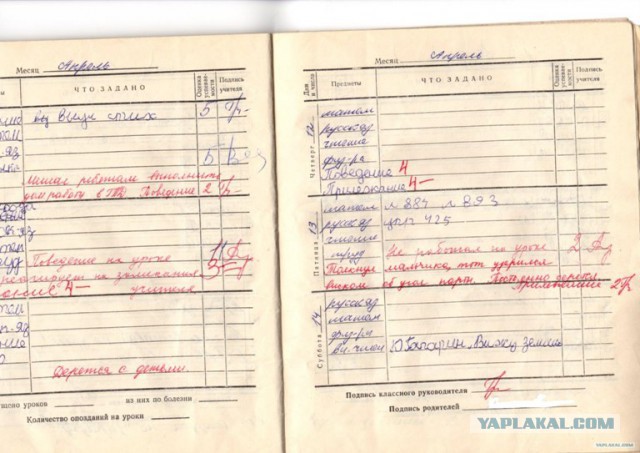 Месяц Апрель
ЧТО ЗАДАНО
Оценка успевае-
мости
Подпись
учителя
выуч. стих 5
5
Мешал ребятам выполнить
дом. работу в Поведение 2
Поведение на уроке
реагирует на замечания
4— учителя
Дерётся с детьми.
из них по болезни
Количество опозданий на уроки
Месяц Апрель
Дни
и числа
Предметы
ЧТО ЗАДАНО
Оценка
успевае-
мости
Подпись
учителя
Четверг 12
матем
русск яз
чтение
физ-ра
Поведение 4
Прилежание 4—
Пятница 13
матем № 884 № 893
русск яз упр 425
чтение
труд Не работал на уроке 2
Толкнул мальчика, тот ударился
виском об угол парты. Постоянно дерется
2
Суббота 14
русск яз
матем
физ-ра
вн. чтен Ю Гагарин. Вижу землю
Подпись классного руководителя
Подпись родителей
YAPLAKAL.COM
yaplakal.com